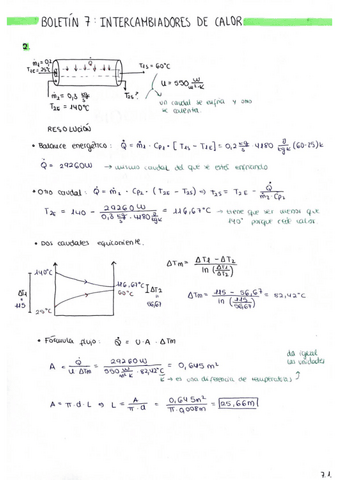 BOLETÍN 7: INTERCAMBIADORES DE CALOR
2.
ṁ₁ = 0,2
T1E = 25°C
Q̇
T1S = 60°C
U = 550 W/m²·K
ṁ₂ = 0,3 kg/s
T2E = 140°C
T2S?
un caudal se enfría y otro
se calienta.
RESOLUCIÓN
• Balance energético: Q̇ = ṁ₁ · Cp₁ · [T1S - T1E] = 0,2 kg/s · 4180 J/kgK · (60-25)K
Q̇ = 29260W → mismo caudal del que se está enfriando
• Otro caudal: Q̇ = ṁ₂ · Cp₂ · (T2E - T2S) → T2S = T2E - Q̇/(ṁ₂ Cp₂)
T2S = 140 - 29260W/(0,3 kg/s · 4180 J/kgK) = 116,67°C → tiene que ser menor que
140° porque cede calor.
• Dos caudales equicorriente.
140°C
116,67°C
60°C
25°C
ΔT1 = 115
ΔT2 = 56,67
ΔTm = (ΔT1 - ΔT2)/ln(ΔT1/ΔT2)
ΔTm = (115 - 56,67)/ln(115/56,67) = 82,42°C
• Fórmula flujo: Q̇ = U · A · ΔTm
A = Q̇/(U ΔTm) = 29260W/(550 W/m²K · 82,42°C) = 0,645 m²
da igual
las unidades
K → es una diferencia de temperaturas
A = π · d · L → L = A/(π · d) = 0,645m²/(π · 0,008m) = 25,66m
7.1